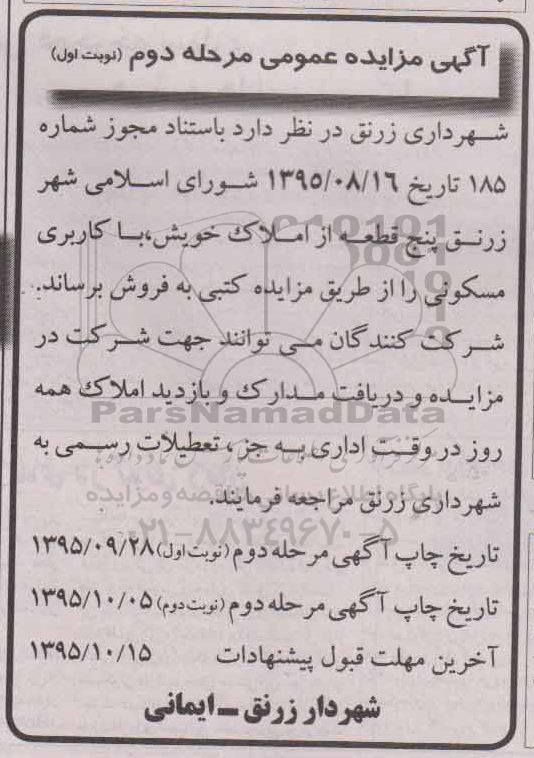 آگهی مزایده عمومی مرحله دوم (نوبت اول)
شهرداری زرنق در نظر دارد باستناد مجوز شماره
۱۸۵ تاریخ ۱۳۹۵/۰۸/۱۶ شورای اسلامی شهر
زرنق پنج قطعه از املاک خویش،با کاربری
مسکونی را از طریق مزایده کتبی به فروش برساند.
شرکت کنندگان می توانند جهت شرکت در
مزایده و دریافت مدارک و بازدید املاک همه
ParsNamadData
روز در وقت اداری به جز، تعطیلات رسمی به
شهرداری زرنق مراجعه فرمایند.
۰۲۱-۸۸۳۴۹۶۷۰-۵
تاریخ چاپ آگهی مرحله دوم (نوبت اول) ۱۳۹۵/۰۹/۲۸
تاریخ چاپ آگهی مرحله دوم (نوبت دوم) ۱۳۹۵/۱۰/۰۵
آخرین مهلت قبول پیشنهادات ۱۳۹۵/۱۰/۱۵
شهردار زرنق - ایمانی